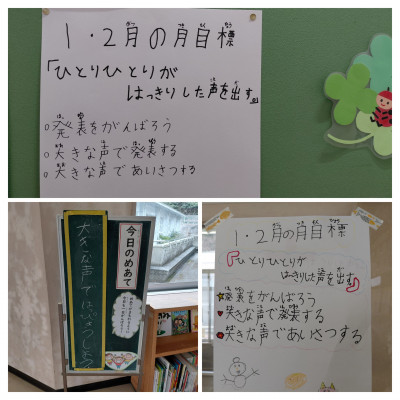 1・2月の月目標
「ひとりひとりが
はっきりした声を出す。」
○発表をがんばろう
○大きな声で発表する
○大きな声であいさつする
今日のめあて
大きな声ではっぴょうしよう
1・2月の月目標
『ひとりひとりが
はっきりした声を出す』
発表をがんばろう
大きな声で発表する
大きな声であいさつする